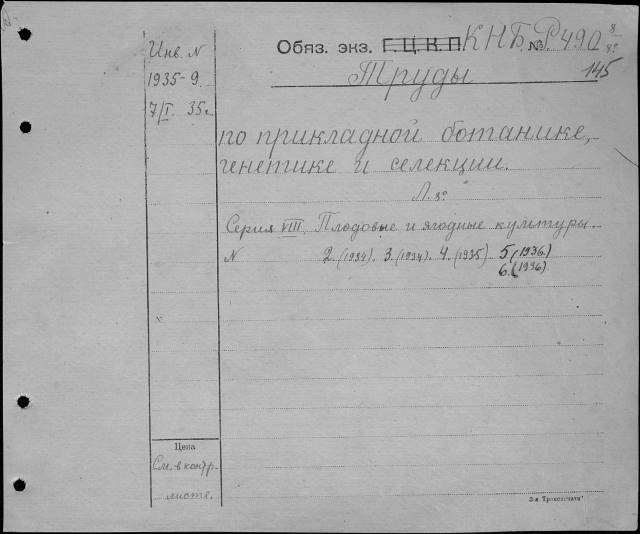 Инв. N
1935-9.
7/I. 35г.
Обяз. экз. Г.Ц.К.П. КНБ. № Р490 8/8°
145
Труды
по прикладной ботанике,
генетике и селекции.
Л. 8°
Серия VIII. Плодовые и ягодные культуры.
N 2. (1934). 3. (1934). 4. (1935) 5 (1936.)
6. (1936).
N
Цена
См. в контр.
листе.